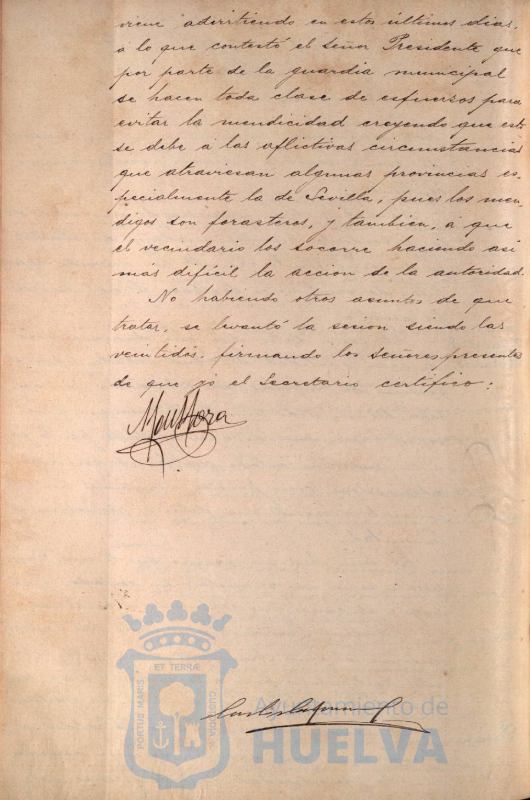 viene adiritiendo en estos últimos dias,
á lo que contestó el señor Presidente que
por parte de la guardia municipal
se hacen toda clase de esfuersos para
evitar la mendicidad creyendo que est
se debe á las aflictivas circunstancias
que atraviesan algunas provincias es-
pecialmente la de Sevilla, pues los men-
digos son forasteros, y tambien, á que
el vecindario los socorre haciendo asi
más difícil la accion de la autoridad.
No habiendo otros asuntos de que
tratar, se levantó la sesion siendo las
veintidós, firmando los señores presentes
de que yó el Secretario certifico:
PORTUS MARIS
ET TERRÆ
CUSTODIA
Ayuntamiento de
HUELVA